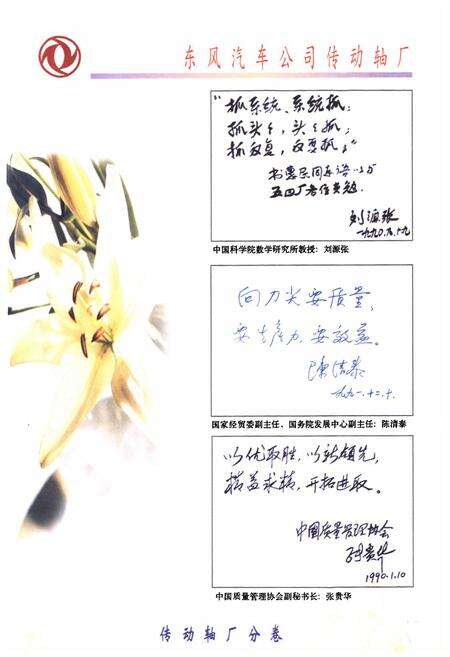 东风汽车公司传动轴厂
"抓系统、系统抓；
抓头头，头头抓；
抓反复，反复抓。"
五四厂
刘源张
中国科学院数学研究所教授：刘源张
向刀尖要质量，
要生产力，要效益。
陈清泰
一九九一.十二.十
国家经贸委副主任、国务院发展中心副主任：陈清泰
以优取胜，以新领先，
精益求精，开拓进取。
中国质量管理协会
张贵华
1990.1.10
中国质量管理协会副秘书长：张贵华
传动轴厂分卷